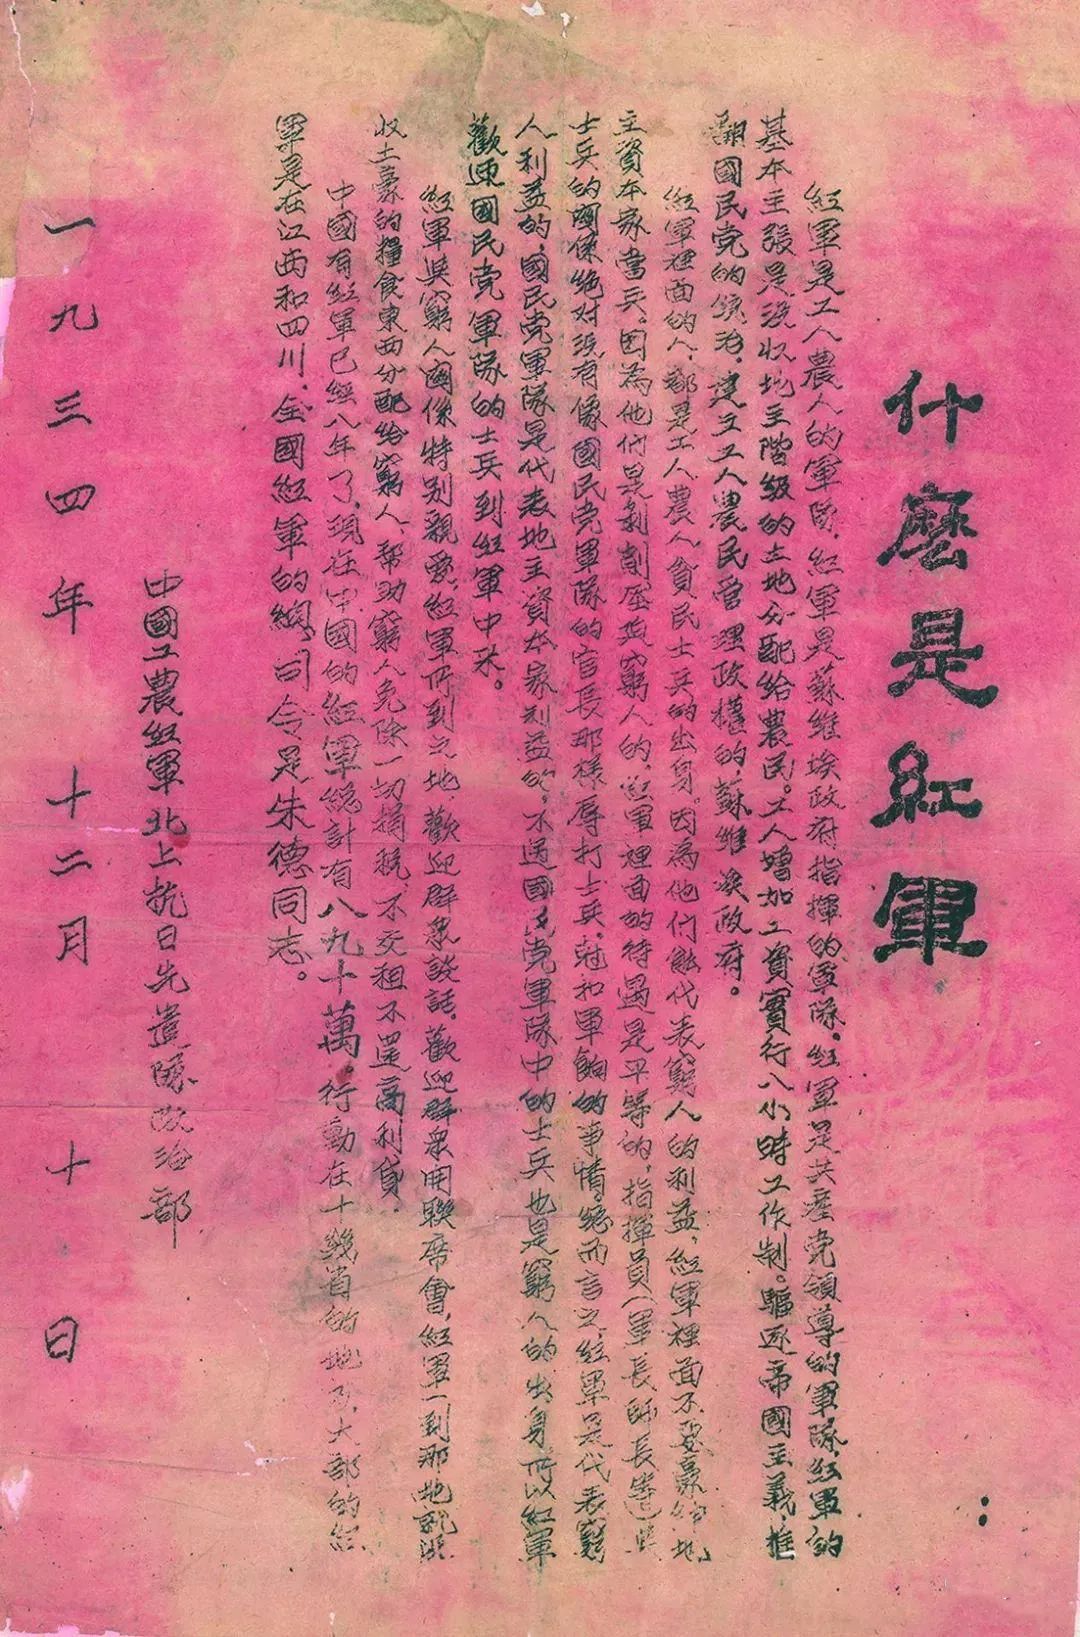 什麽是紅軍
紅軍是工人農人的軍隊，紅軍是蘇維埃政府指揮的軍隊。紅軍是共產党領導的軍隊，紅軍的
基本主張是沒收地主階級的土地分配給農民。工人增加工資實行八小時工作制。驅逐帝國主義，推
翻國民党的統治。建立工人農民管理政權的，蘇維埃政府。
紅軍裡面的人，都是工人農人貧民士兵的出身。因為他们能代表窮人的利益，紅軍裡面不要豪紳地
主資本家當兵。因為他们是剝削压迫窮人的，紅軍裡面的待遇是平等的，指揮員（軍長師長等）與
士兵的關係絶对没有像國民党軍隊的官長那樣辱打士兵，尅扣軍餉的事情。總而言之，紅軍是代表窮
人利益的，國民党軍隊是代表地主資本家利益的，不過國民党軍隊中的士兵也是窮人的出身所以紅軍
歡迎國民党軍隊的士兵到紅軍中來。
紅軍與窮人關係特别親愛，紅軍所到之地，歡迎群衆談話。歡迎群衆開聯席會，紅軍一到那地就沒
收土豪的糧食東西分配給窮人，帮助窮人免除一切捐税，不交租不還高利貸。
中國有紅軍已經八年了，現在中國的紅軍總計有八九十萬。行動在十幾省的地方，大部的紅
軍是在江西和四川，全國紅軍的總司令是朱德同志。
中國工農紅軍北上抗日先遣隊政治部
一九三四年十二月十日